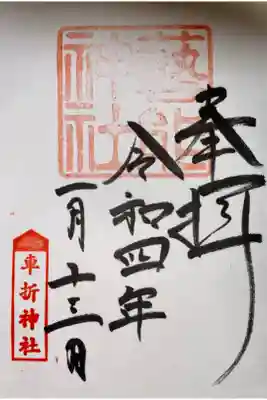 奉拝
令和四年
一月十三日
藝能神社
車折神社